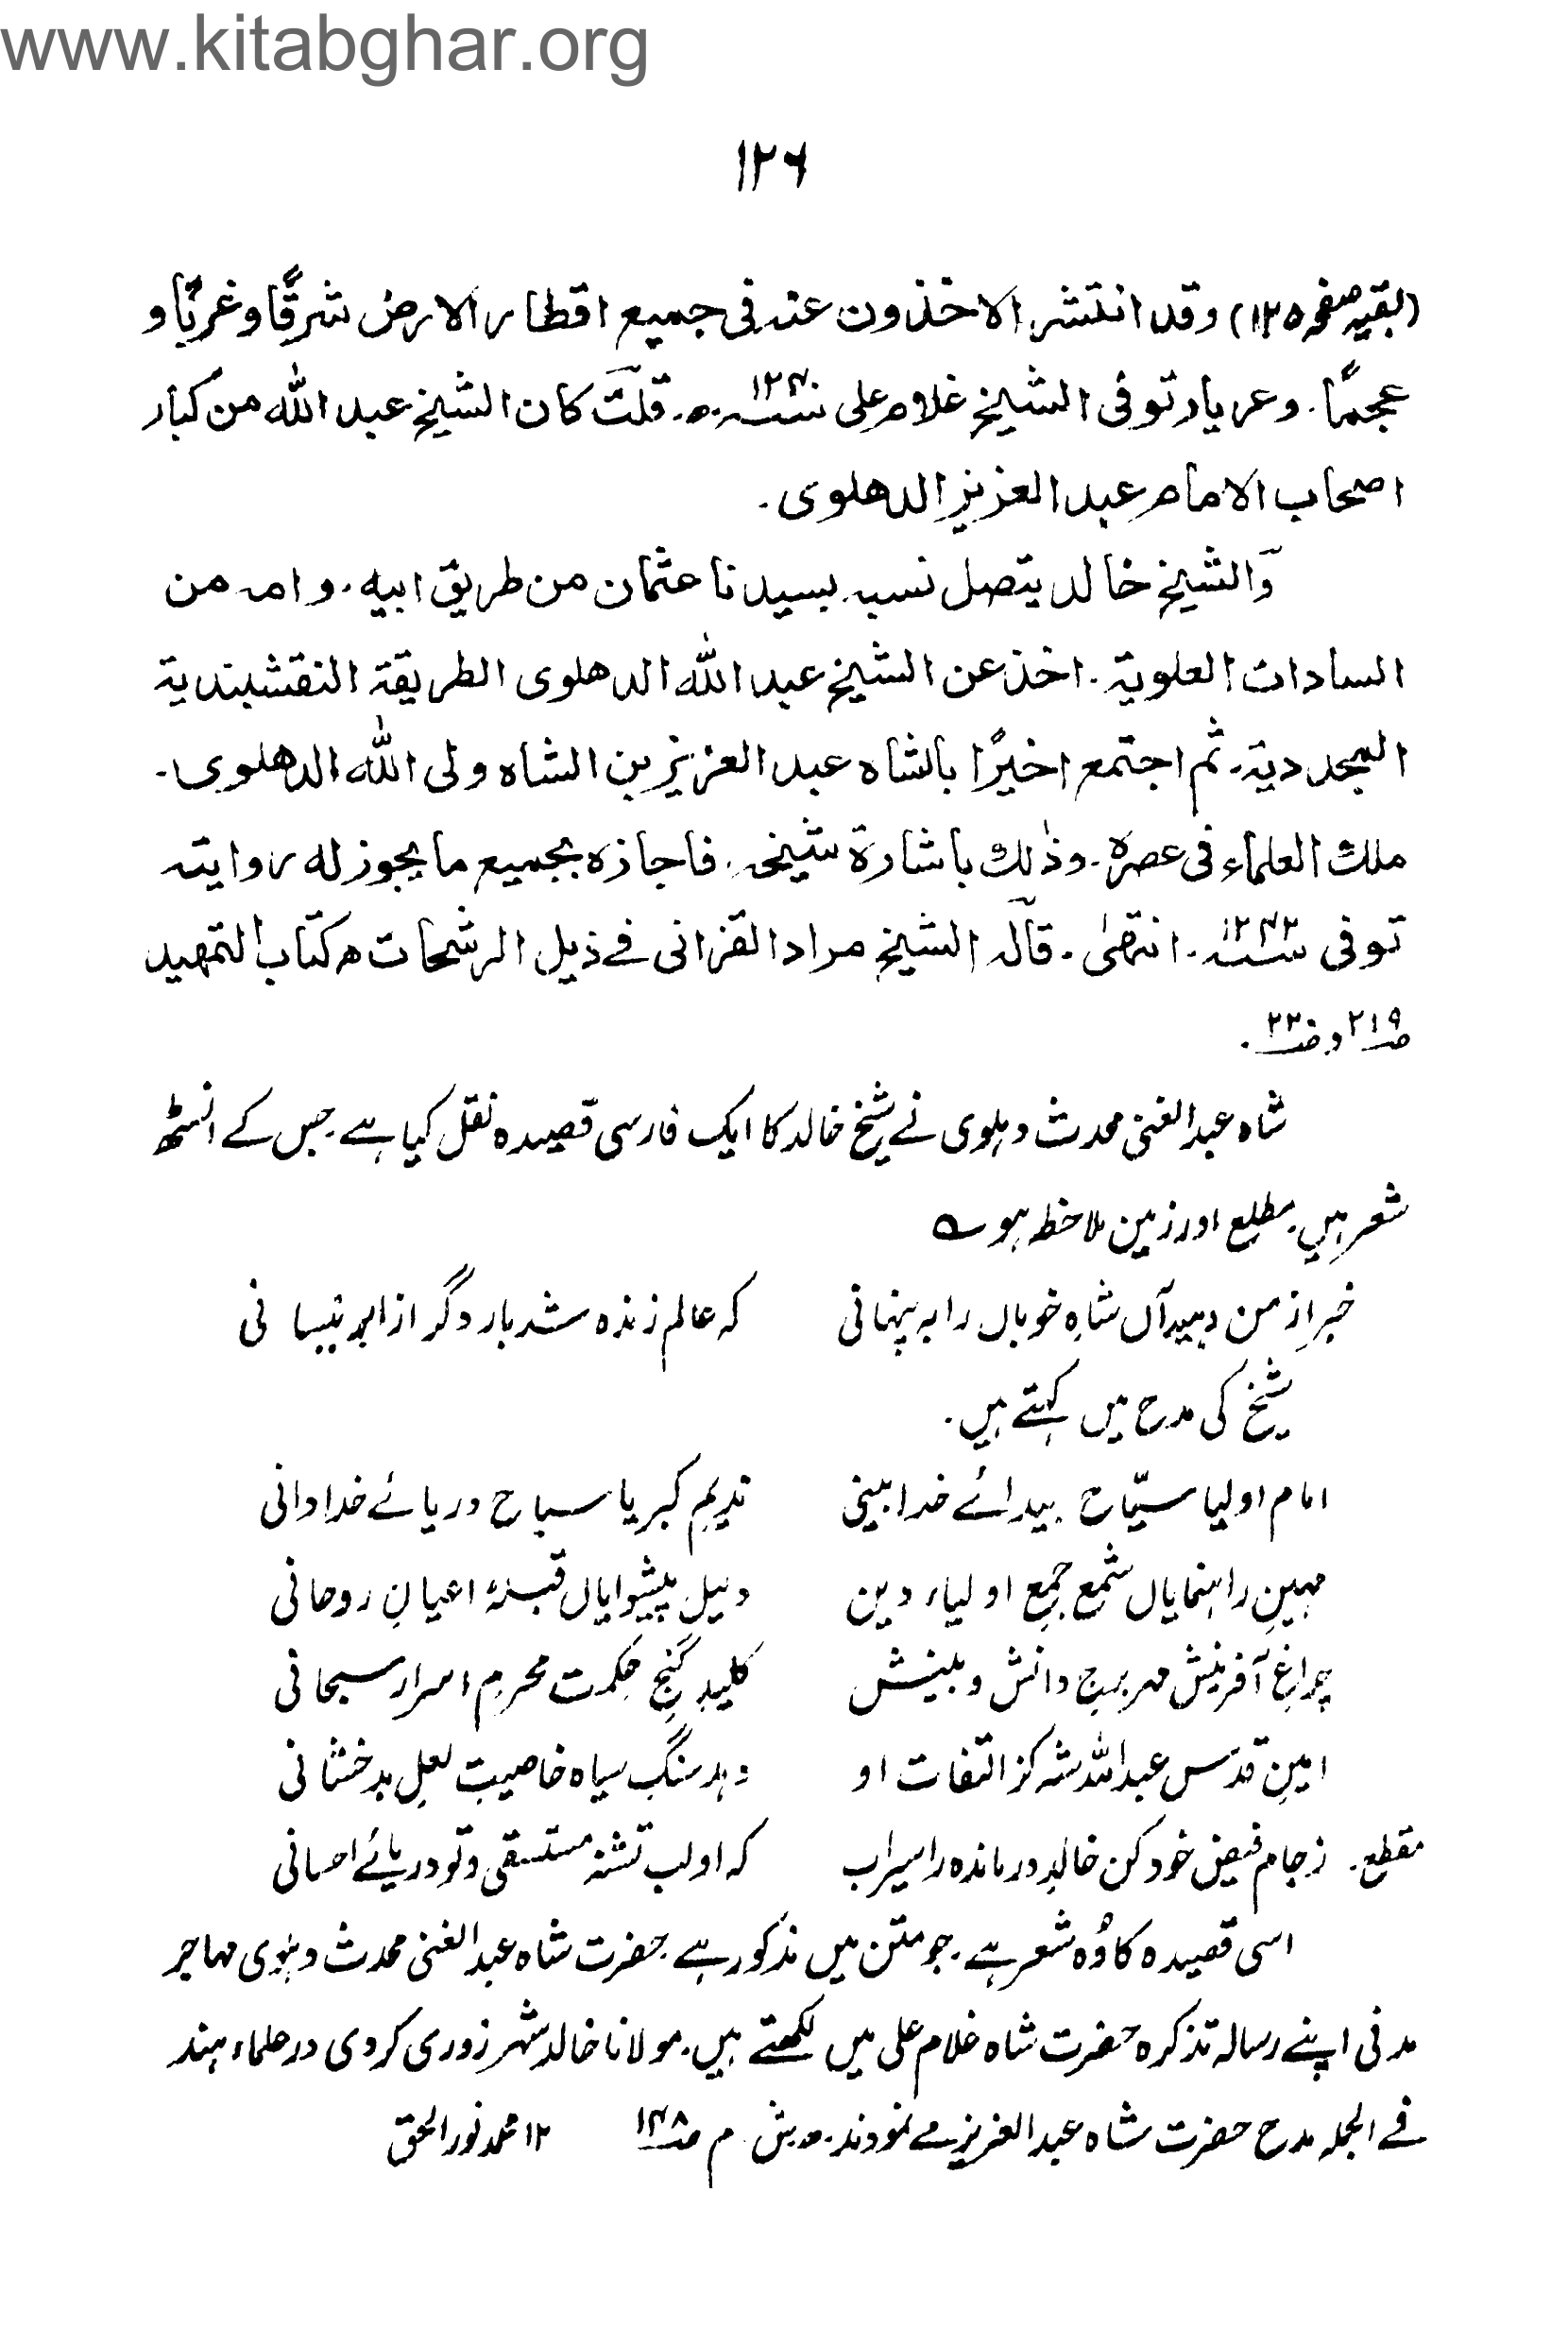 www.kitabghar.org
۱۲۶
(بقیہ صفحہ ۱۲۵) وقد انتشر الاخذون عنہ فی جمیع اقطار الارض شرقًا وغربًا و
عجمًا. وعربا. توفی الشیخ غلام علی سنہ ۱۲۴۰ھ. قلت کان الشیخ عبد اللہ من کبار
اصحاب الامام عبد العزیز الدھلوی.
والشیخ خالد یتصل نسبہ بسیدنا عثمان من طریق ابیہ. وامہ من
السادات العلویۃ. اخذ عن الشیخ عبد اللہ الدھلوی الطریقۃ النقشبندیۃ
المجددیۃ. ثم اجتمع اخیرًا بالشاہ عبد العزیز بن الشاہ ولی اللہ الدھلوی.
ملک العلماء فی عصرہ. وذٰلک باشارۃ شیخہ. فاجازہ بجمیع ما یجوز لہ روایتہ
توفی سنہ ۱۲۴۲. انتھیٰ. قالہ الشیخ مراد القزانی فے ذیل الرشحات ھ کتاب التمھید
ص ۲۱۹ و ص ۲۲۰.
شاہ عبد الغنی محدث دہلوی نے شیخ خالد کا ایک فارسی قصیدہ نقل کیا ہے جس کے انسٹھ
شعر ہیں. مطلع اور زمین ملاحظہ ہو ے
خبر از من دہید آں شاہِ خوباں را بہ پنہانی کہ عالم زندہ شد بار دگر از ابر نیسانی
شیخ کی مدح میں کہتے ہیں.
امام اولیا سیّاح بیدائے خدا بینی ندیمِ کبریا سباح دریائے خدا دانی
مہینِ راہنمایاں شمع جمعِ اولیاء دین دلیل پیشوایاں قبلۂ اعیانِ روحانی
چراغِ آفرینش مہر برجِ دانش و بینش کلیدِ گنجِ حکمت محرمِ اسرار سبحانی
امینِ قدس عبد اللہ شہ کز التفات او دہد سنگِ سیاہ خاصیت لعلِ بدخشانی
مقطع. ز جام فیض خود کن خالدِ درماندہ را سیراب کہ او لب تشنہ مستسقی و تو دریائے احسانی
اسی قصیدہ کا وُہ شعر ہے. جو متن میں مذکور ہے. حضرت شاہ عبد الغنی محدث دہلوی مہاجر
مدنی اپنے رسالہ تذکرہ حضرت شاہ غلام علی میں لکھتے ہیں. مولانا خالد شہر زوری کردی در علماء ہند
فے الجملہ مدح حضرت شاہ عبد العزیز مے نمودند. م ص ۱۴۸ ۱۲ محمد نور الحق